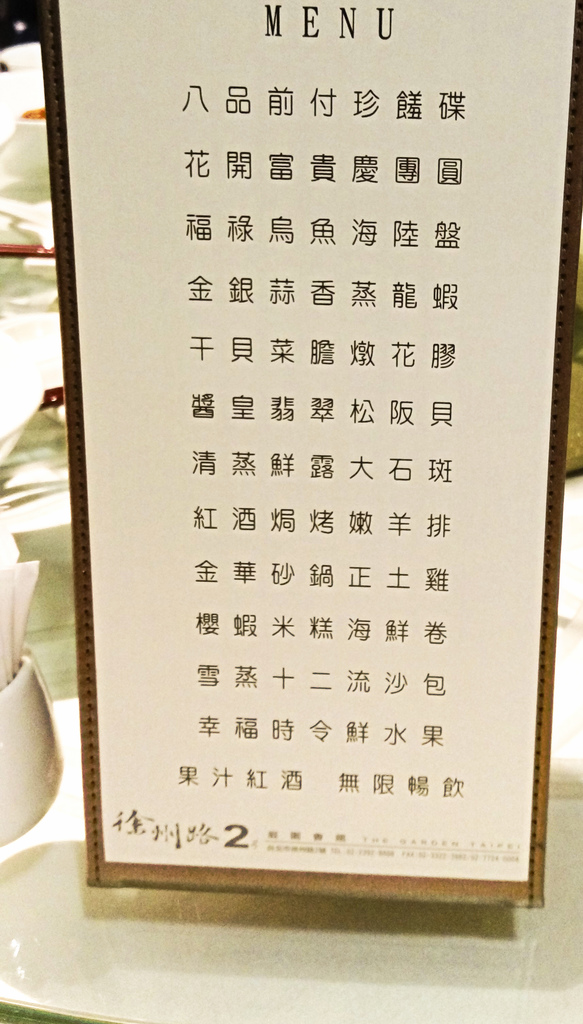 MENU
八品前付珍饈碟
花開富貴慶團圓
福祿烏魚海陸盤
金銀蒜香蒸龍蝦
干貝菜膽燉花膠
醬皇翡翠松阪貝
清蒸鮮露大石斑
紅酒焗烤嫩羊排
金華砂鍋正土雞
櫻蝦米糕海鮮卷
雪蒸十二流沙包
幸福時令鮮水果
果汁紅酒 無限暢飲
徐州路2號 庭園會館 THE GARDEN TAIPEI